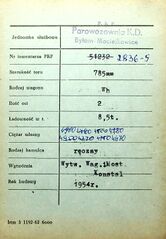 P.K.P.
Parowozownia K.D.
Bytom Maciejkowice
Jednostka służbowa
Nr inwentarza PKP 51232 2836-S
Szerokość toru 785mm
Rodzaj wagonu Wh
Ilość osi 2
Ładowność w t. 8,5t.
Ciężar własny
4300 4200 4250 4280
Rodzaj hamulca ręczny
Wytwórnia Wytw. Wag.i Most.
Konstal
Rok budowy 1954r.